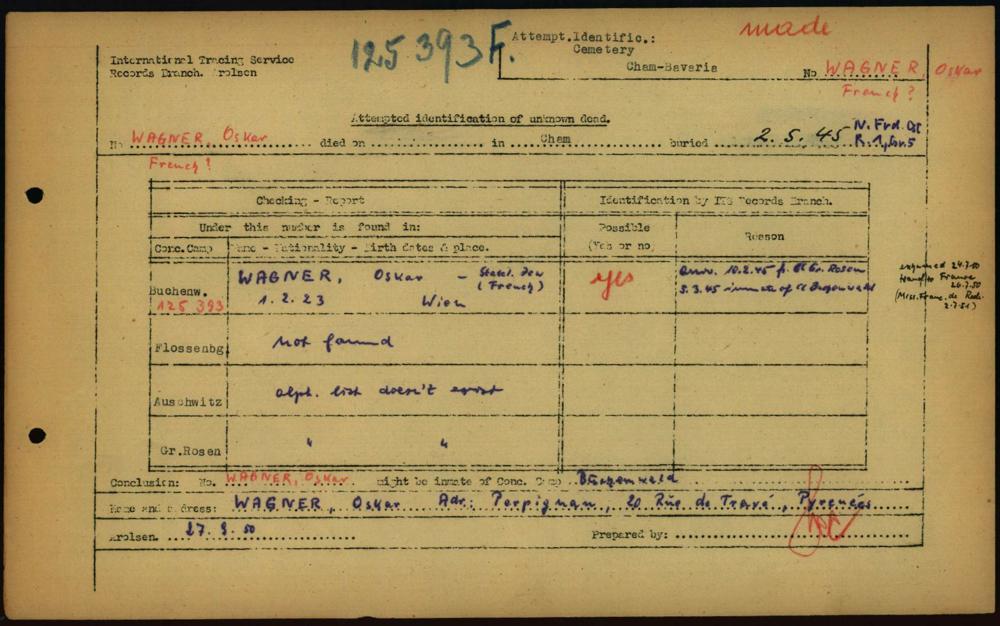 125393 F.
made
Attempt.Identific.:
Cemetery
Cham-Bavaria
International Tracing Service
Records Branch. Arolsen
No WAGNER, Oskar
French?
Attempted identification of unknown dead.
No WAGNER, Oskar died on ........ in Cham buried 2.5.45
R.1,
French?
Checking - Report
Identification by ITS Records Branch.
Under this number is found in:
Possible
(Yes or no)
Reason
Conc.Camp
Name - Nationality - Birth dates & place.
Buchenw.
125 393
WAGNER, Oskar - Statel. Jew
(French)
1.2.23 Wien
yes
10.2.45 f. Gr. Rosen
5.3.45 inmate of
exhumed 24.7.50
France
26.7.50
(Miss. Franc. de
2.7.51)
Flossenbg
not found
Auschwitz
alph. list doesn't exist
Gr.Rosen
" "
Conclusion: No. WAGNER, Oskar might be inmate of Conc. Camp
Name and address: WAGNER, Oskar Adr: Perpignan, 20 Rue de Travé, Pyrenées
Arolsen. 27.9.50
Prepared by: